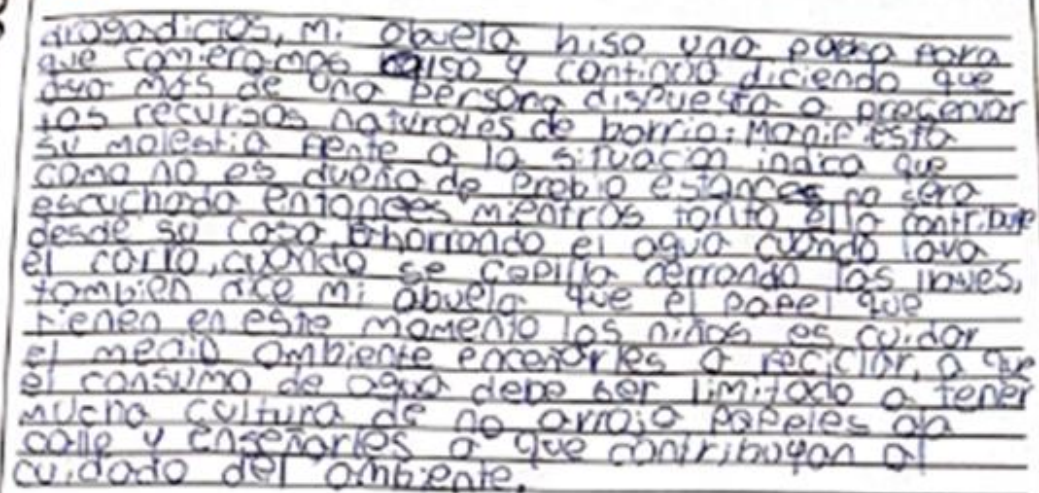 drogadictos, mi abuela hiso una pausa para
que comieramos algo y continuo diciendo que
aya más de una persona dispuesta a precervar
los recursos naturales de barrio: Manifiesta
su molestia frente a la situacion indica que
como no es dueña de predio no sera
escuchada entonces mientras tanto ella contribuye
desde su casa ahorrando el agua cuando lava
el carro, cuando se cepilla cerrando las llaves,
tambien dice mi abuela que el papel que
tienen en este momento los niños es cuidar
el medio ambiente enceñarles a reciclar, a que
el consumo de agua debe ser limitado a tener
mucha cultura de no arroja papeles
calle y enseñarles a que contribuyan al
cuidado del ambiente.